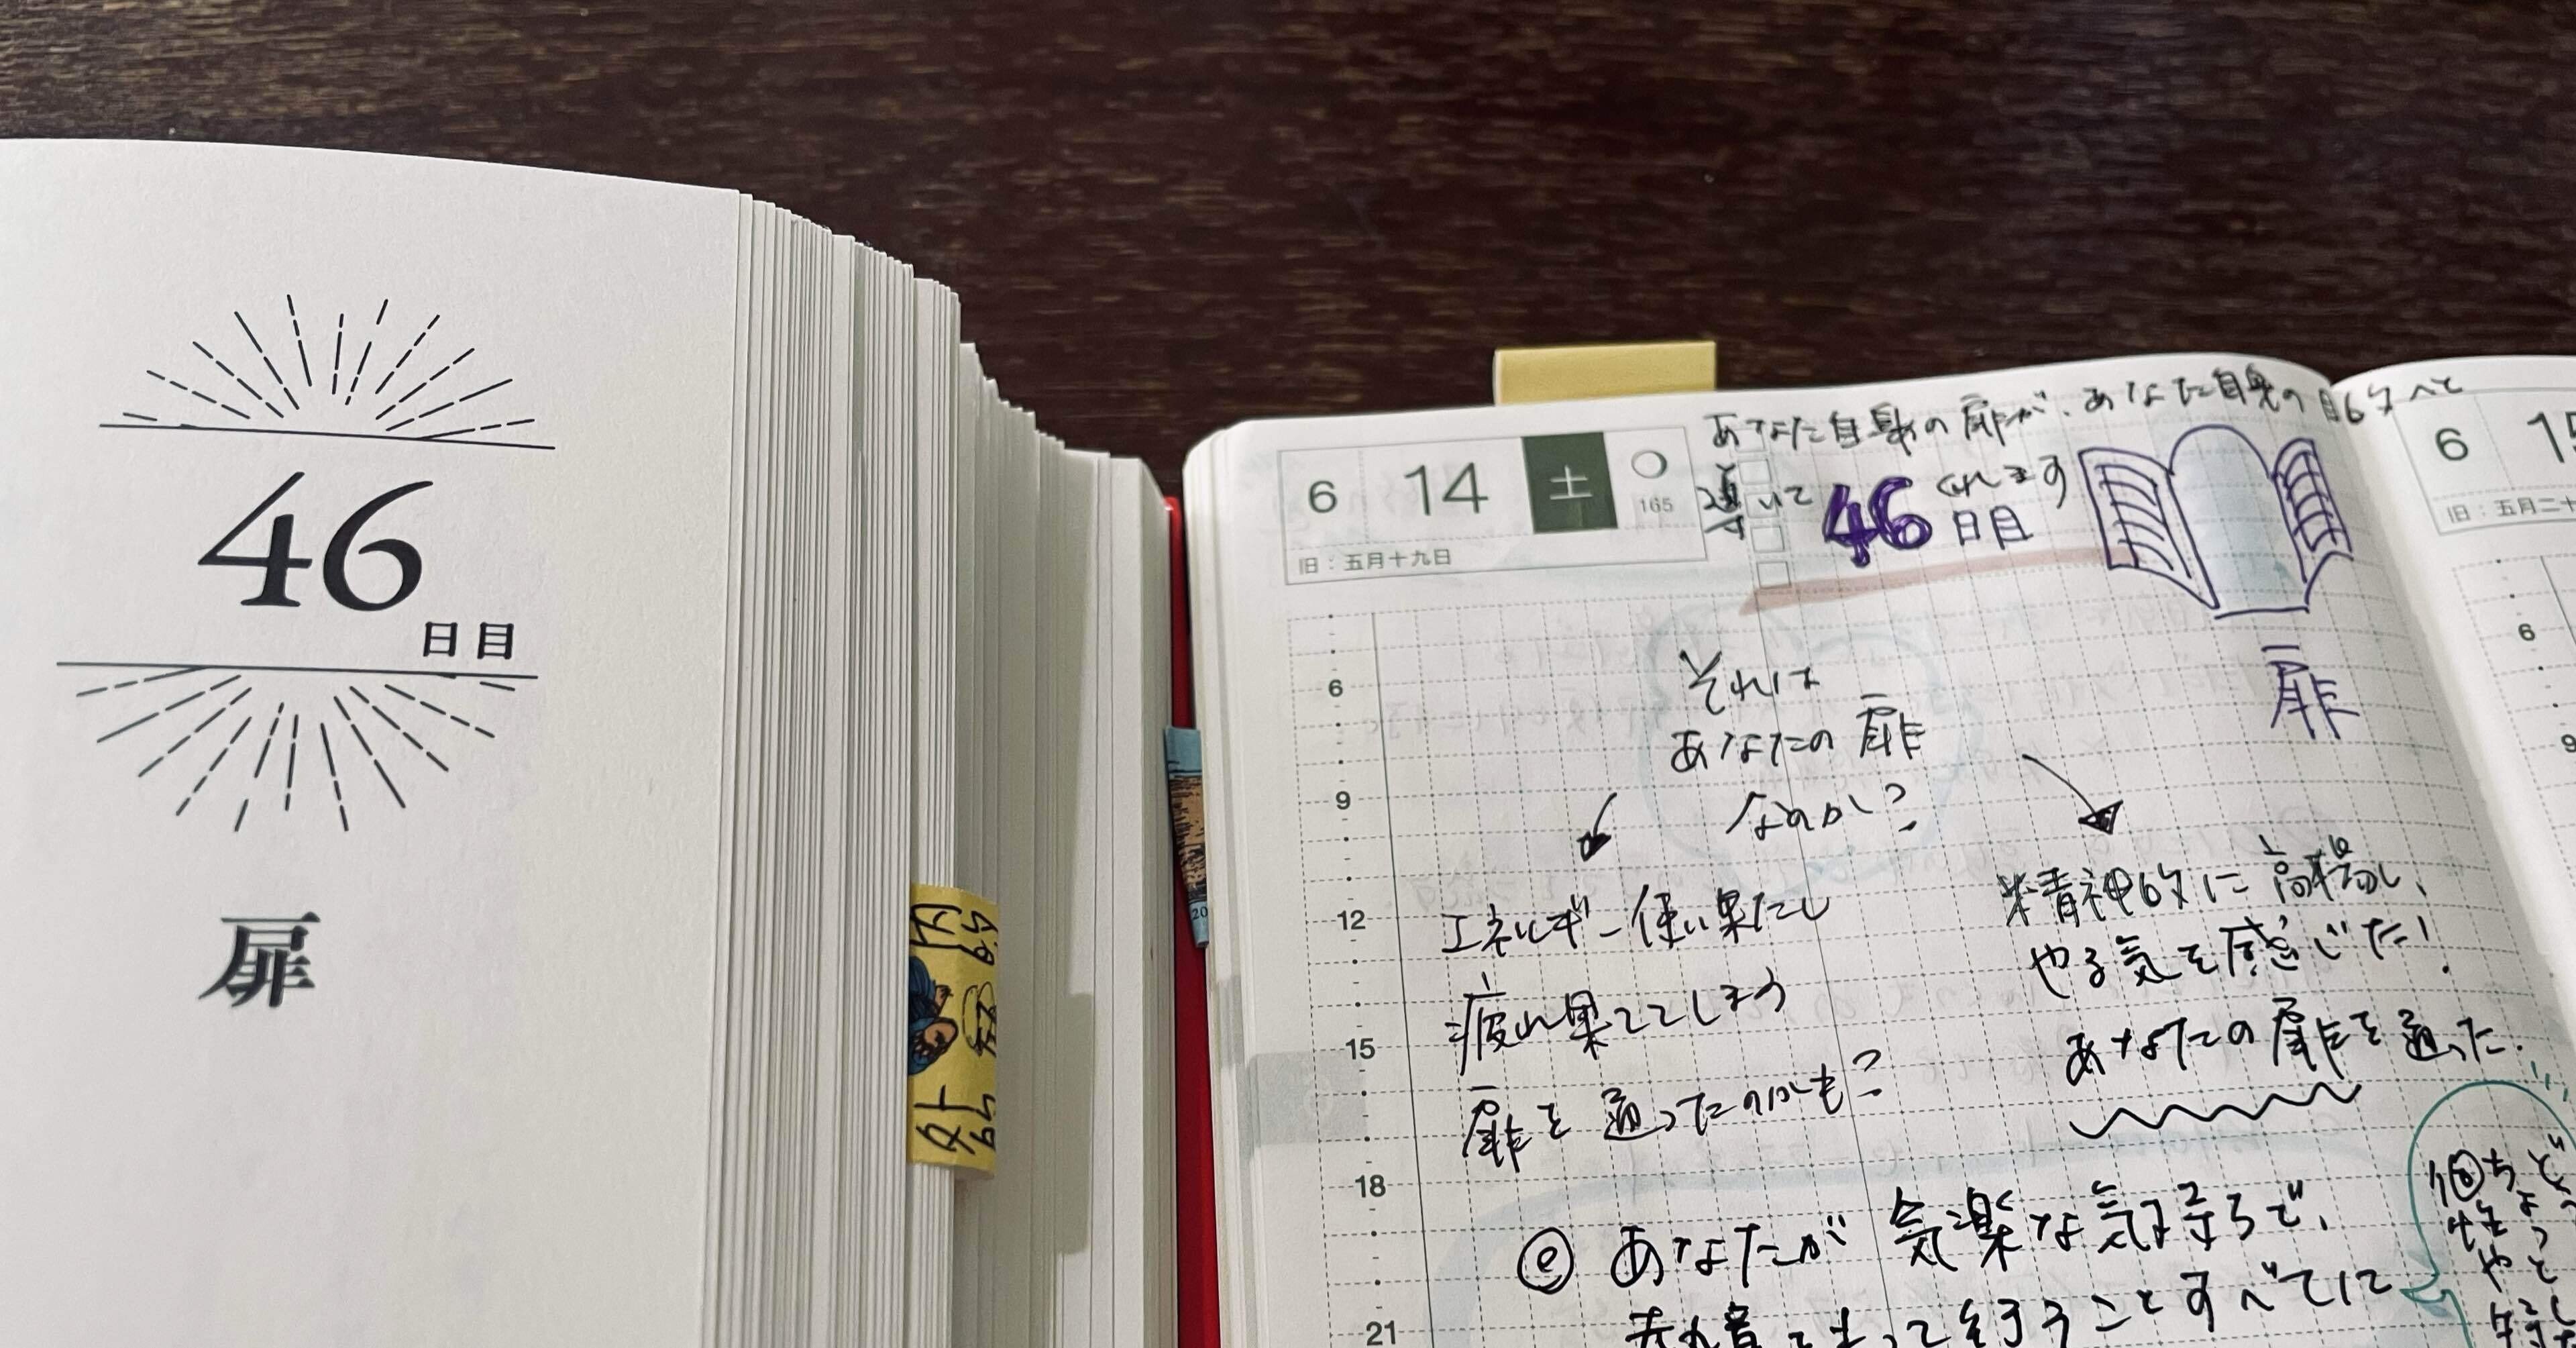 46
日目
扉
6 14 土
165
旧：五月十九日
あなた自身の扉が、あなた自身の目的へと
導いて
くれます
46
日目
扉
それは
あなたの扉
なのか？
エネルギー使い果たし
疲れ果ててしまう
扉を通ったのかも？
精神的に高揚し、
やる気を感じた！
あなたの扉を通った.
ⓔ あなたが 気楽な気持ちで、
行うことすべてに
6
9
12
15
18
21
6 15
旧：五月二十
6
9
20